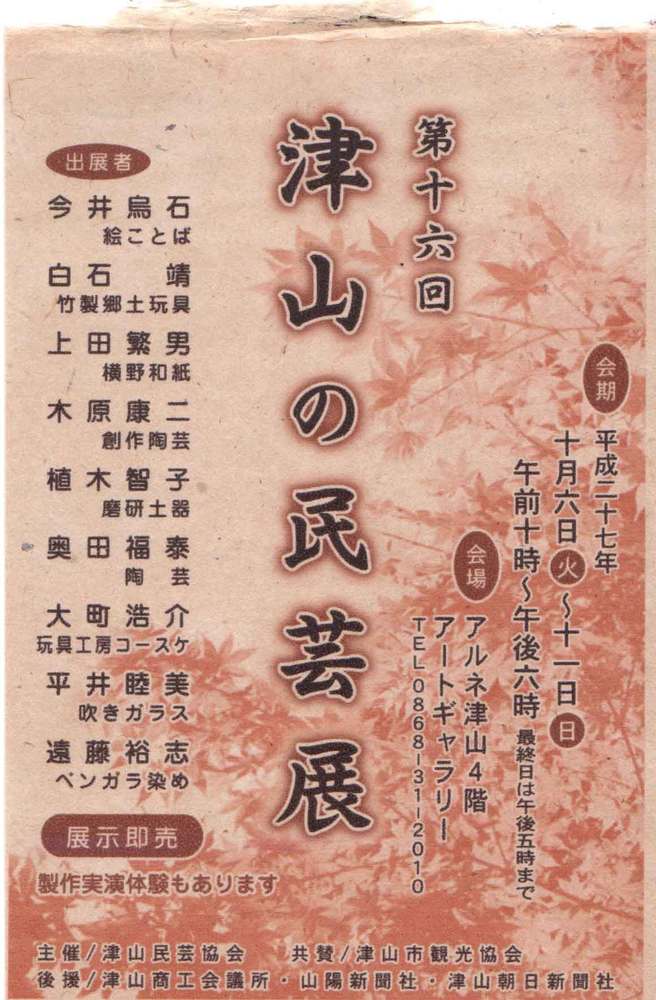 第十六回
津山の民芸展
会期
平成二十七年
十月六日火〜十一日日
午前十時〜午後六時 最終日は午後五時まで
会場
アルネ津山4階
アートギャラリー
TEL0868-31-2010
出展者
今井烏石
絵ことば
白石 靖
竹製郷土玩具
上田繁男
横野和紙
木原康二
創作陶芸
植木智子
磨研土器
奥田福泰
陶芸
大町浩介
玩具工房コースケ
平井睦美
吹きガラス
遠藤裕志
ベンガラ染め
展示即売
製作実演体験もあります
主催/津山民芸協会 共賛/津山市観光協会
後援/津山商工会議所・山陽新聞社・津山朝日新聞社